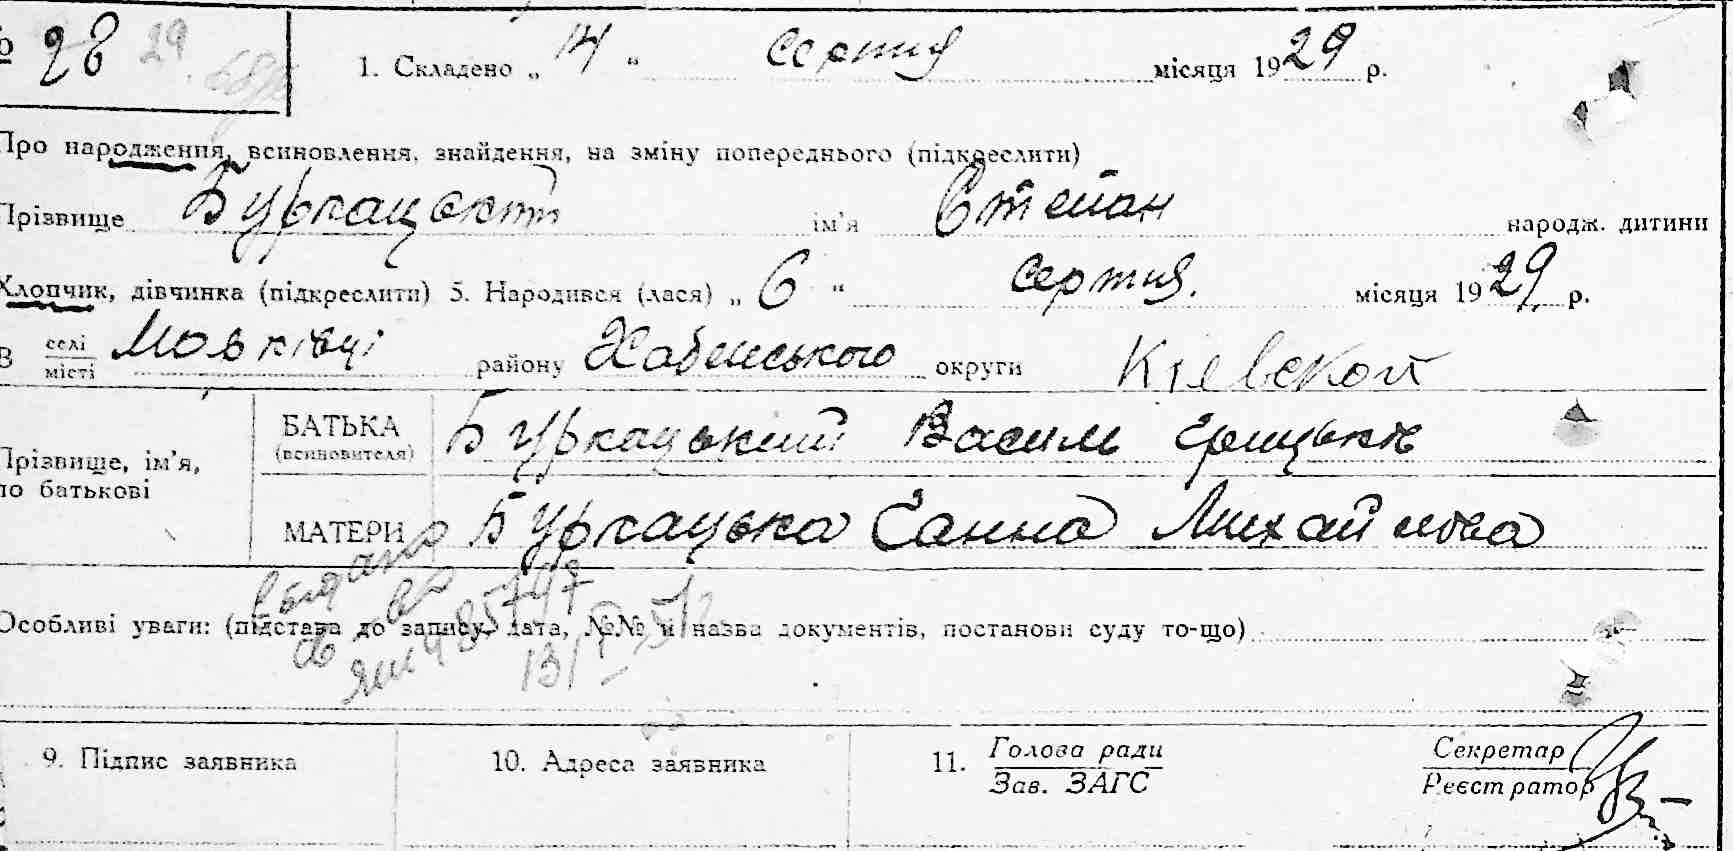 № 28 29
1. Складено „ 14 “ серпня місяця 1929 р.
Про народження, всиновлення, знайдення, на зміну попереднього (підкреслити)
Прізвище Буркацький ім'я Степан народж. дитини
Хлопчик, дівчинка (підкреслити) 5. Народився (лася) „ 6 “ серпня. місяця 1929 р.
В селі/місті Мовківці району Хабенського округи Кіевской
Прізвище, ім'я, по батькові
БАТЬКА (всиновителя) Буркацький Василь Грицьків
МАТЕРИ Буркацька Ганна Михайлова
выдано
св во
Особливі уваги: (підстава до запису, дата, №№ и назва документів, постанови суду то-що)
9. Підпис заявника 10. Адреса заявника 11. Голова ради Секретар
Зав. ЗАГС Реєстратор